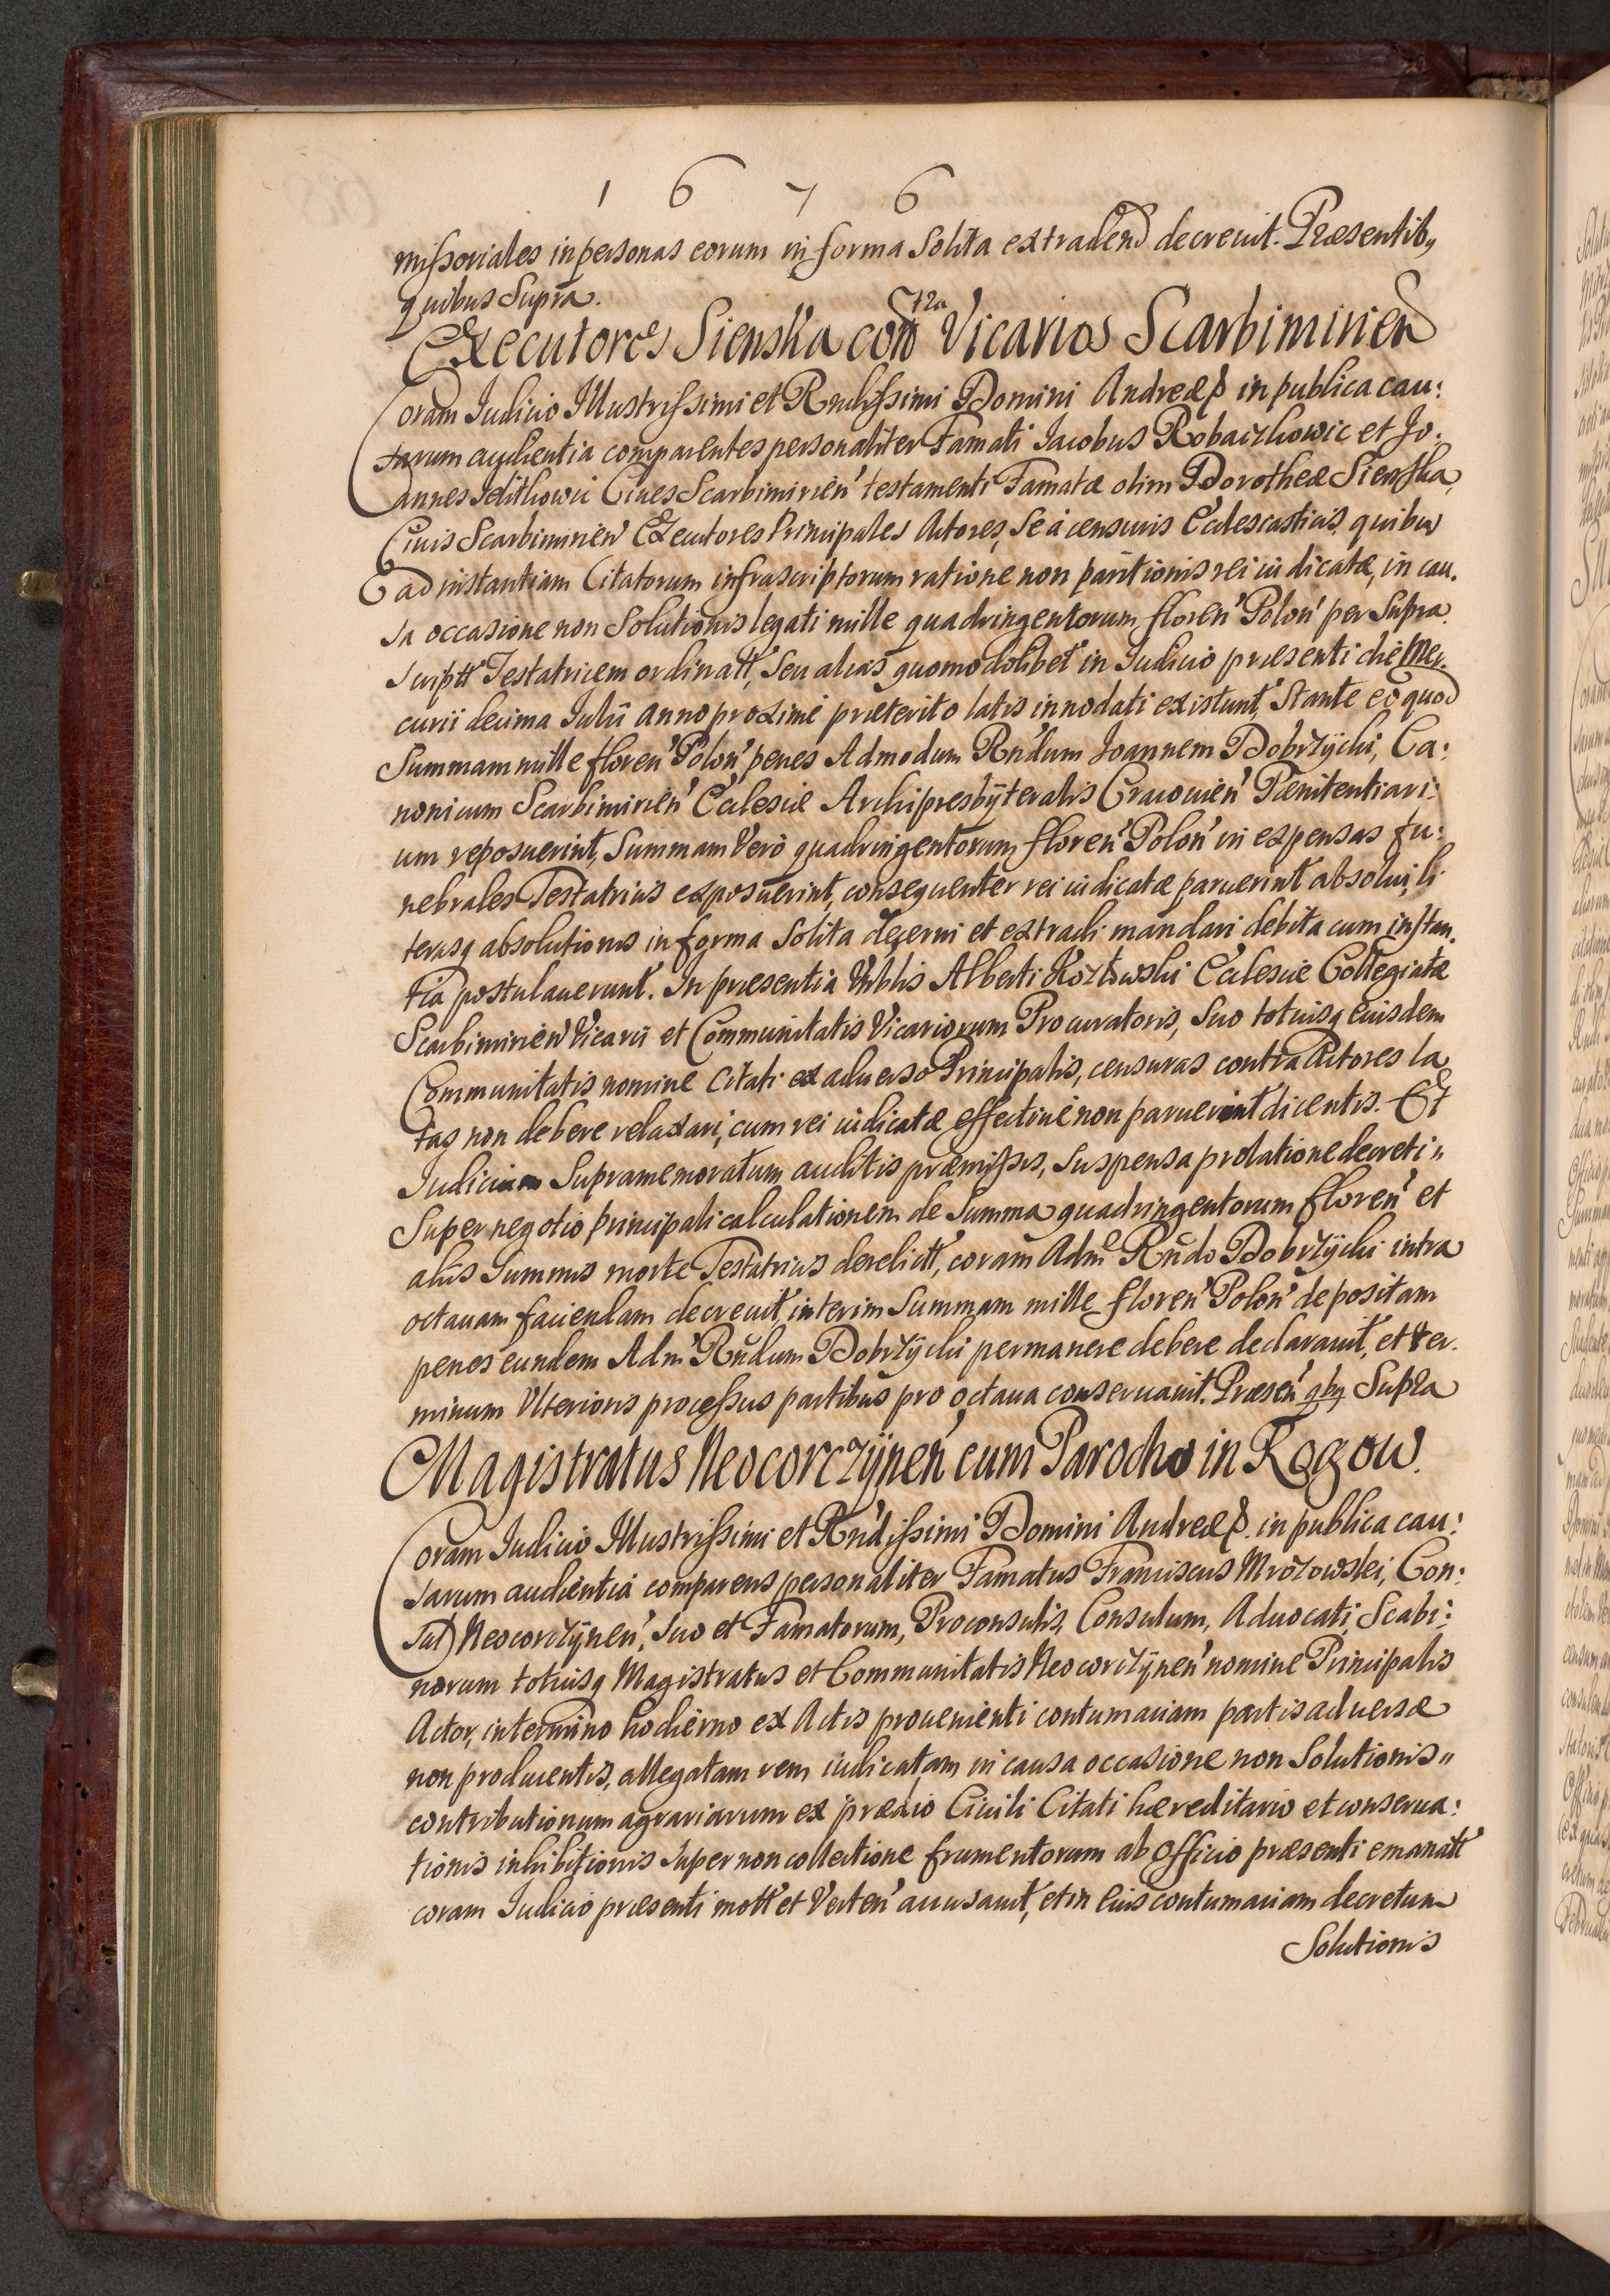 1 6 7 6
missoriales in personas eorum in forma solita extraden decreuit. Præsentib9
quibus Supra.
Executores Sienska con tra Vicarios Scarbimirien
Coram Iudicio Illustrissimi et Rndissimi Domini Andreæ p in publica cau:
sarum audientia comparentes personaliter Famati Iacobus Robaczkowic et Jo:
annes Ielithowic Ciues Scarbimirien' testamenti Famatæ olim Dorotheæ Sienska,
Ciuis Scarbimirien Executores Principales Actores, se á censuris Ecclesiasticis, quibus
ad instantiam Citatorum infrascriptorum ratione non paritionis rei iudicatæ, in cau.
sa occasione non Solutionis legati mille quadringentorum floren' Polon' per Supra
scriptt' Testatricem ordinatt', seu alias quomodolibet in Iudicio præsenti die Mer.
curii decima Iulii anno proximé præterito latis innodati existunt, Stante eo quod
Summam mille floren' Polon' penes Admodum Rndum Joannem Dobrzÿcki, Ca:
nonicum Scarbimirien' Ecclesiæ Archipresbÿteralis Cracouien' Pænitentiari:
um reposuerint, Summam Veró quadringentorum floren' Polon' in expensas fu:
nebrales Testatricis exposuerint, consequenter rei iudicatæ paruerint absolui, li
terasq absolutionis in forma solita decerni et extradi mandari debita cum instan.
tia postulauerunt. In præsentia Vnblis Alberti Kozłowski Ecclesiæ Collegiatæ
Scarbimirien Vicarii et Communitatis Vicariorum Procuratoris, Suo totiusq eiusdem
Communitatis nomine Citati ex aduerso Principalis, censuras contra Actores la
tas non debere relaxari, cum rei iudicatæ effectiué non paruerint dicentis. Et
Iudicium Supramemoratum auditis præmissis, suspensa prolatione decreti"
Super negotio principali calculationem de Summa quadringentorum floren' et
aliis Summis morte Testatricis derelictt', coram Adm' Rndo Dobrzÿcki intra
octauam faciendam decreuit, interim Summam mille floren' Polon' depositam
penes eundem Adm' Rndum Dobrzÿcki permanere debere declarauit, et ter.
minum Vlterioris processus partibus pro octaua conseruauit. Præsen' qbg Supra
Magistratus Neocorczÿnen' cum Parocho in Rogow.
Coram Iudicio Illustrissimi et Rndissimi Domini Andreæ p. in publica cau:
sarum audientia comparens personaliter Famatus Franciscus Mrozowski, Con:
sul Neocorczÿnen', suo et Famatorum, Proconsulis, Consulum, Aduocati, Scabi:
norum totiusq Magistratus et Communitatis Neocorczÿnen' nomine Principalis
Actor, in termino hodierno ex Actis prouenienti contumaciam partis aduersæ
non producentis, allegatam rem iudicatam in causa occasione non Solutionis"
contributionum agrariarum ex prædio Ciuili Citati hæreditario et conserua:
tionis inhibitionis super non collectione frumentorum ab Officio præsenti emanatt'
coram Iudicio præsenti mott' et Verten' accusauit, et in eius contumaciam decretum
Solutionis